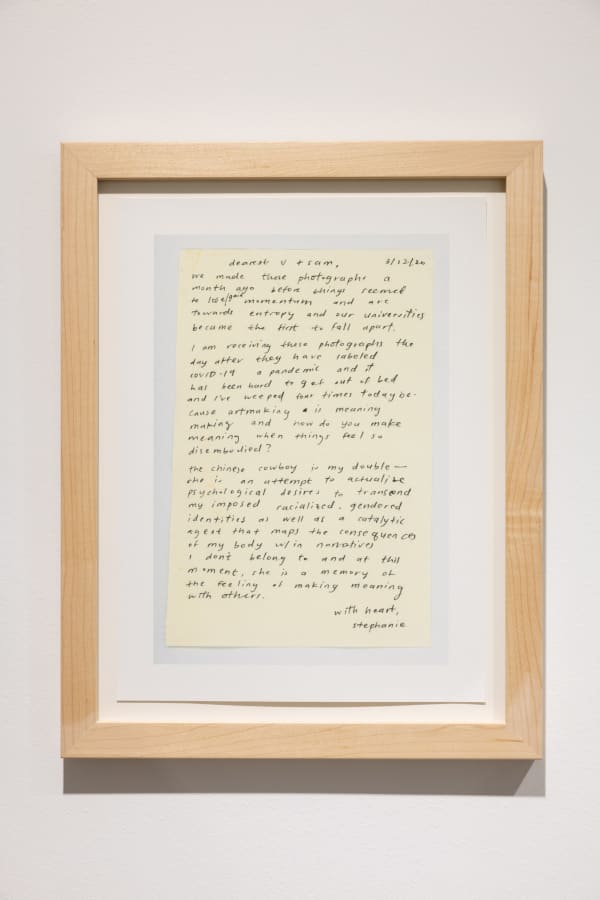 dearest v + sam, 3/12/20
we made these photographs a
month ago before things seemed
to lose/gain momentum and are
towards entropy and our universities
became the first to fall apart.
I am receiving these photographs the
day after they have labeled
covid-19 a pandemic and it
has been hard to get out of bed
and I've weeped four times today be-
cause artmaking is meaning
making and how do you make
meaning when things feel so
disembodied?
the chinese cowboy is my double—
she is an attempt to actualize
psychological desires to transcend
my imposed racialized, gendered
identities as well as a catalytic
agent that maps the consequences
of my body w/in narratives
I don't belong to and at this
moment, she is a memory of
the feeling of making meaning
with others.
with heart,
stephanie